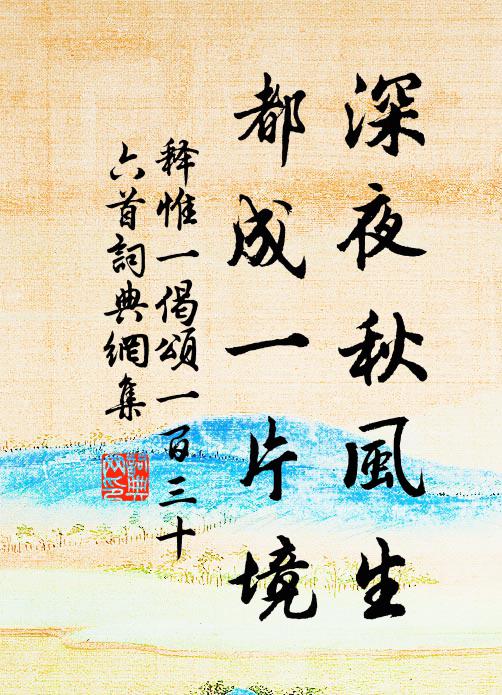 深夜秋風生
都成一片境
释惟一偈頌一百三十
六首詞典網集